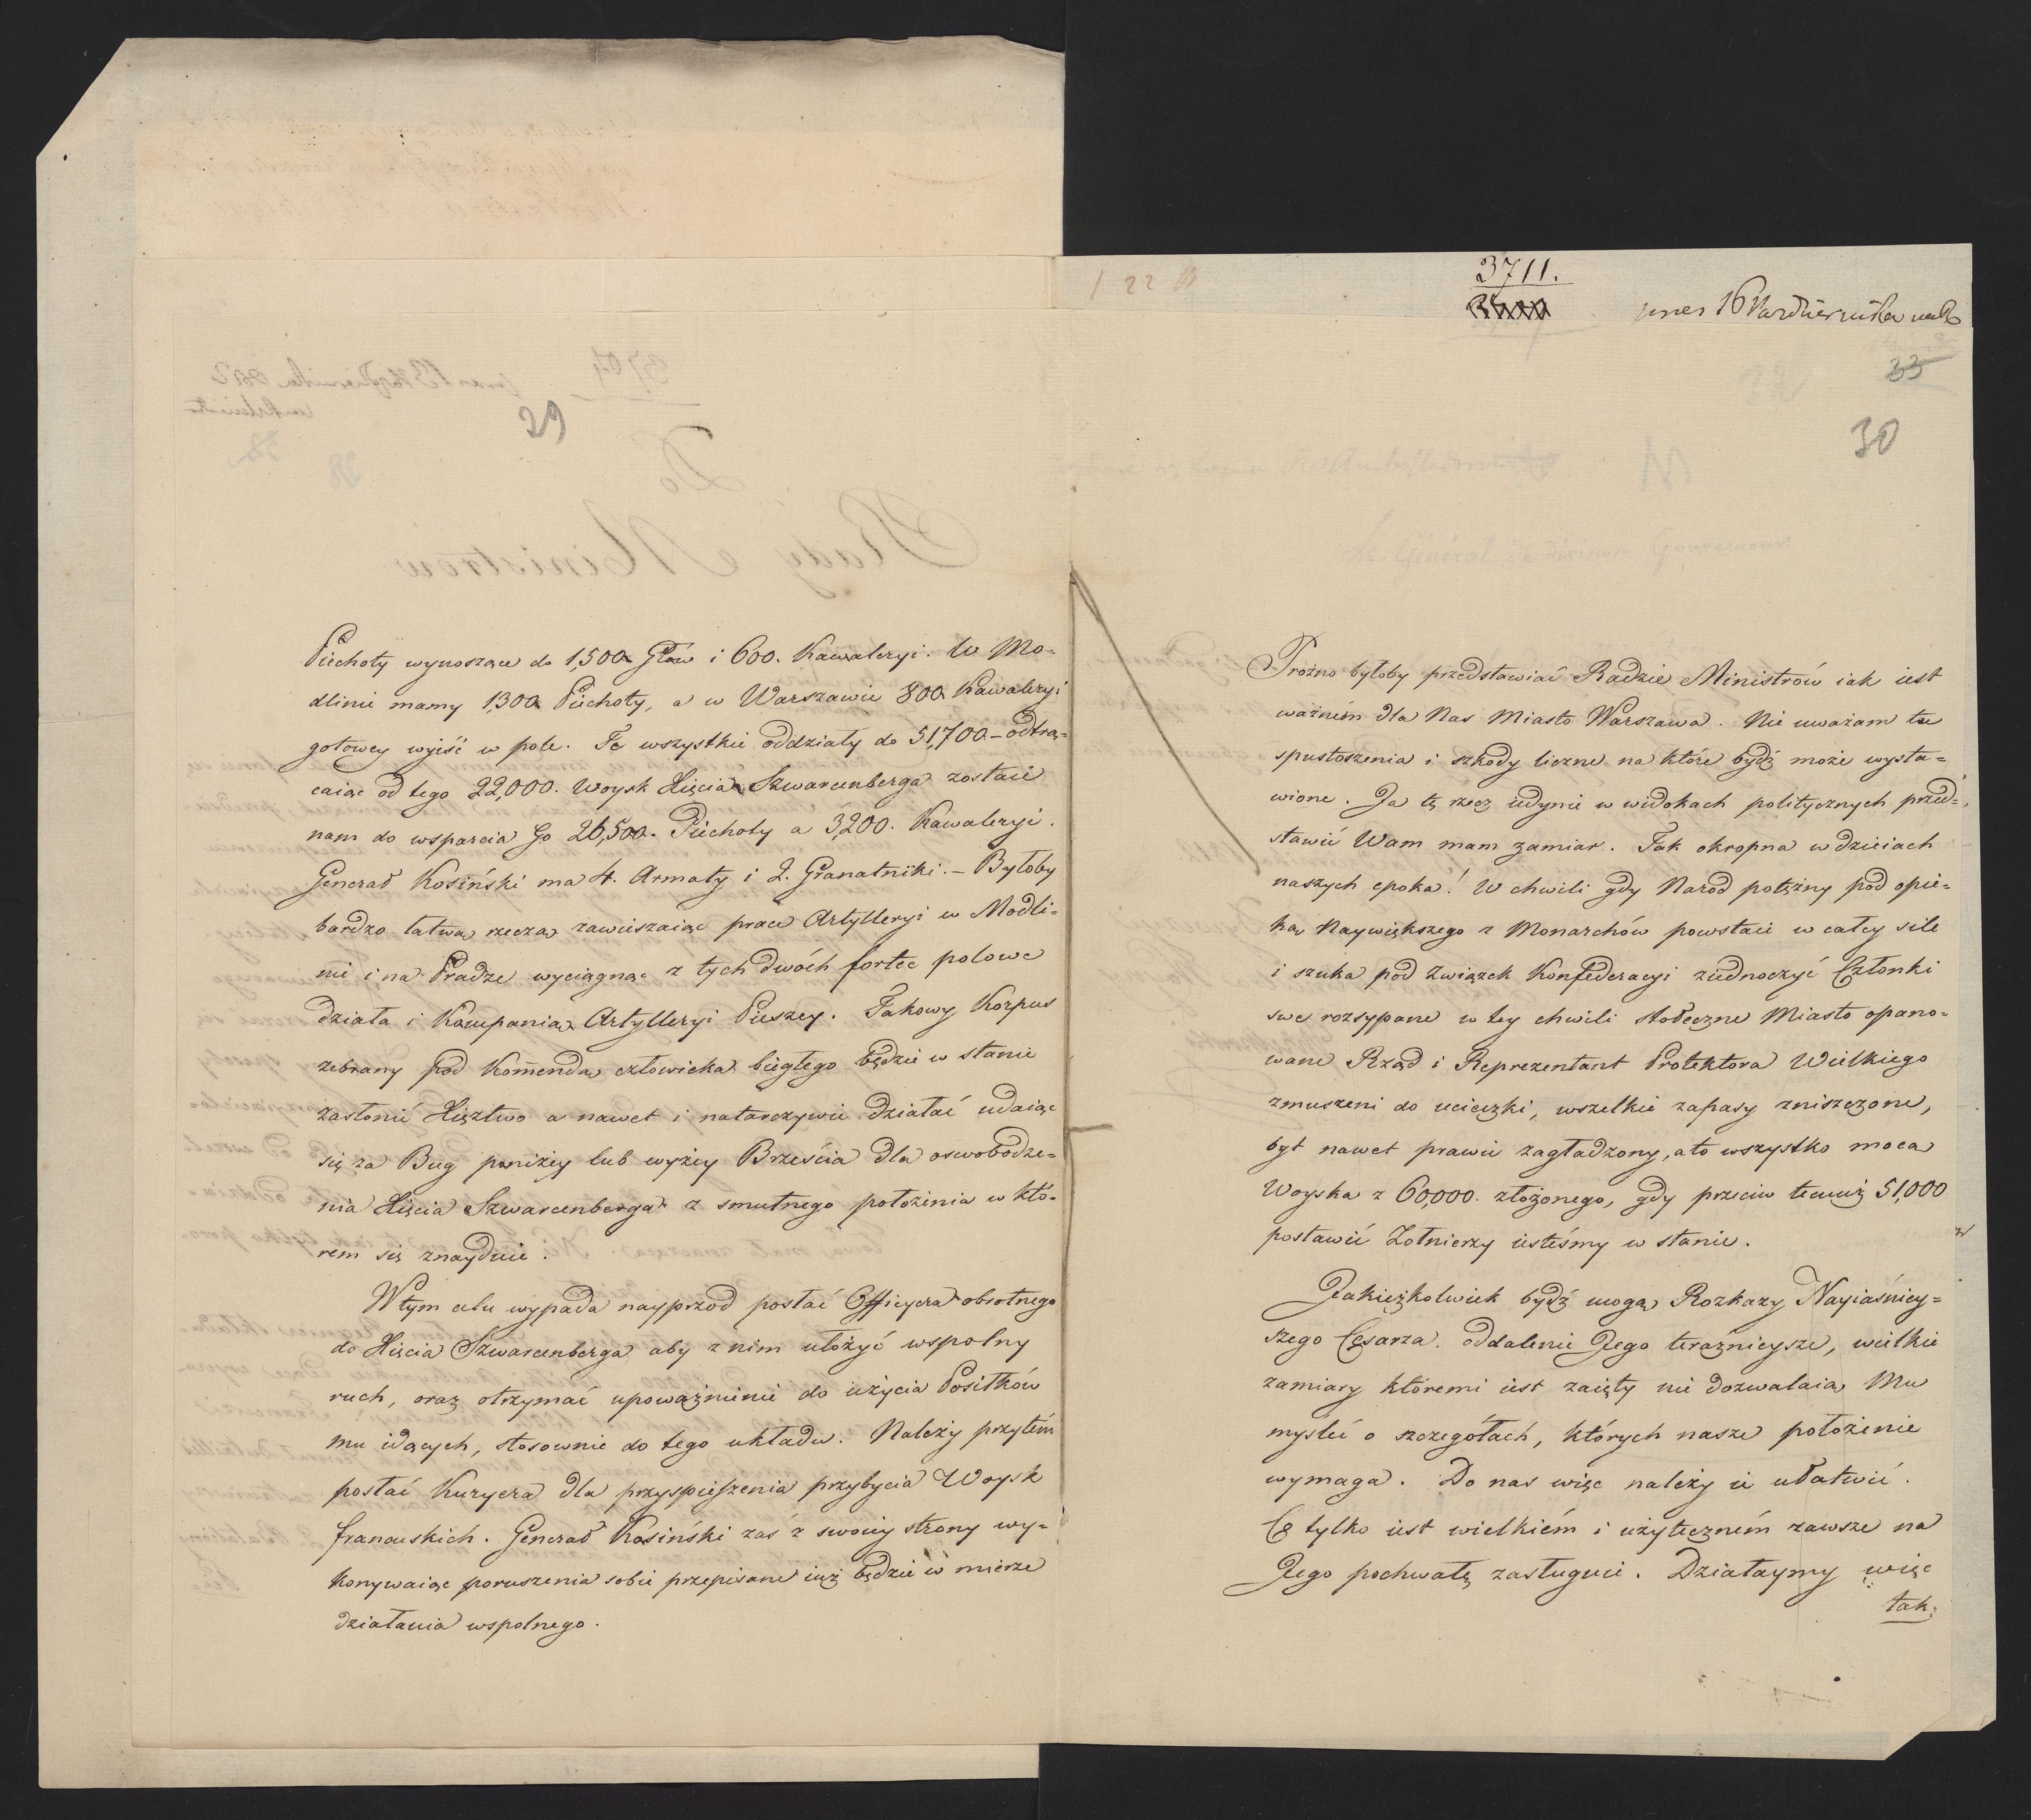 29
Piechoty wynoszące do 1,500 Głów i 600. Kawaleryi. W Mo=
dlinie mamy 1,300 Piechoty, a w Warszawie 800 Kawaleryi
gotowey wyiść w pole. Te wszystkie oddziały do 51,700 – odtrą=
caiąc od tego 22,000. Woysk Xięcia Szwarcenberga zostaie
nam do wsparcia Go 26,500. Piechoty a 3,200. Kawaleryi.
Generał Kosiński ma 4. Armaty i 2. Granatniki. – Byłoby
bardzo łatwą rzeczą zawieszaiąc prace Artylleryi w Modli=
nie i na Pradze wyciągnąc z tych dwóch fortec polowe
działa i Kompanią Artylleryi Pieszey. Takowy Korpus
zebrany pod Komendą człowieka biegłego będzie w stanie
zasłonić Xięztwo a nawet i natarczywie działać udaiąc
się za Bug poniżey lub wyżey Brześcia dla oswobodze=
nia Xięcia Szwarcenberga z smutnego położenia w któ=
rem się znayduie.
W tym celu wypada nayprzod posłać Officyera obrotnego
do Xięcia Szwarcenberga aby z nim ułożyć wspolny
ruch, oraz otrzymać upoważnienie do użycia Posiłków
mu idących, stosownie do tego układu. Należy przytém
posłać Kuryera dla przyspieszenia przybycia Woysk
francuskich. Generał Kosiński zaś z swoiey strony wy=
konywaiąc poruszenia sobie przepisane iuż będzie w mierze
działania wspolnego.
3711.
16 Października
33
30
Prożno byłoby przedstawiać Radzie Ministrów iak iest
ważném dla Nas Miasto Warszawa. Nie uważam tu
spustoszenia i szkody liczne na które bydź może wysta=
wione. Ja tę rzecz iedynie w widokach politycznych przed=
stawić Wam mam zamiar. Jak okropna w dzieiach
naszych epoka! W chwili gdy Narod potężny pod opie=
ką Naywiększego z Monarchów powstaie w całey sile
i szuka pod Związek Konfederacyi ziednoczyć Członki
swe rozsypane w tey chwili stołeczne Miasto opano=
wane Rząd i Reprezentant Protektora Wielkiego
zmuszeni do ucieczki, wszelkie zapasy zniszczone,
byt nawet prawie zagładzony, a to wszystko mocą
Woyska z 60,000. złożonego, gdy przeciw temuż 51,000
postawić Żołnierzy iesteśmy w stanie.
Jakieżkolwiek bydź mogą Rozkazy Nayiaśniey=
szego Cesarza. oddalenie Jego teraźnieysze, wielkie
zamiary któremi iest zaięty nie dozwalaią Mu
myśleć o szczegółach, których nasze położenie
wymaga. Do nas więc należy ie ułatwić.
Co tylko iest wielkiém i użyteczném zawsze na
Jego pochwałę zasługuie. Działaymy więc
tak,